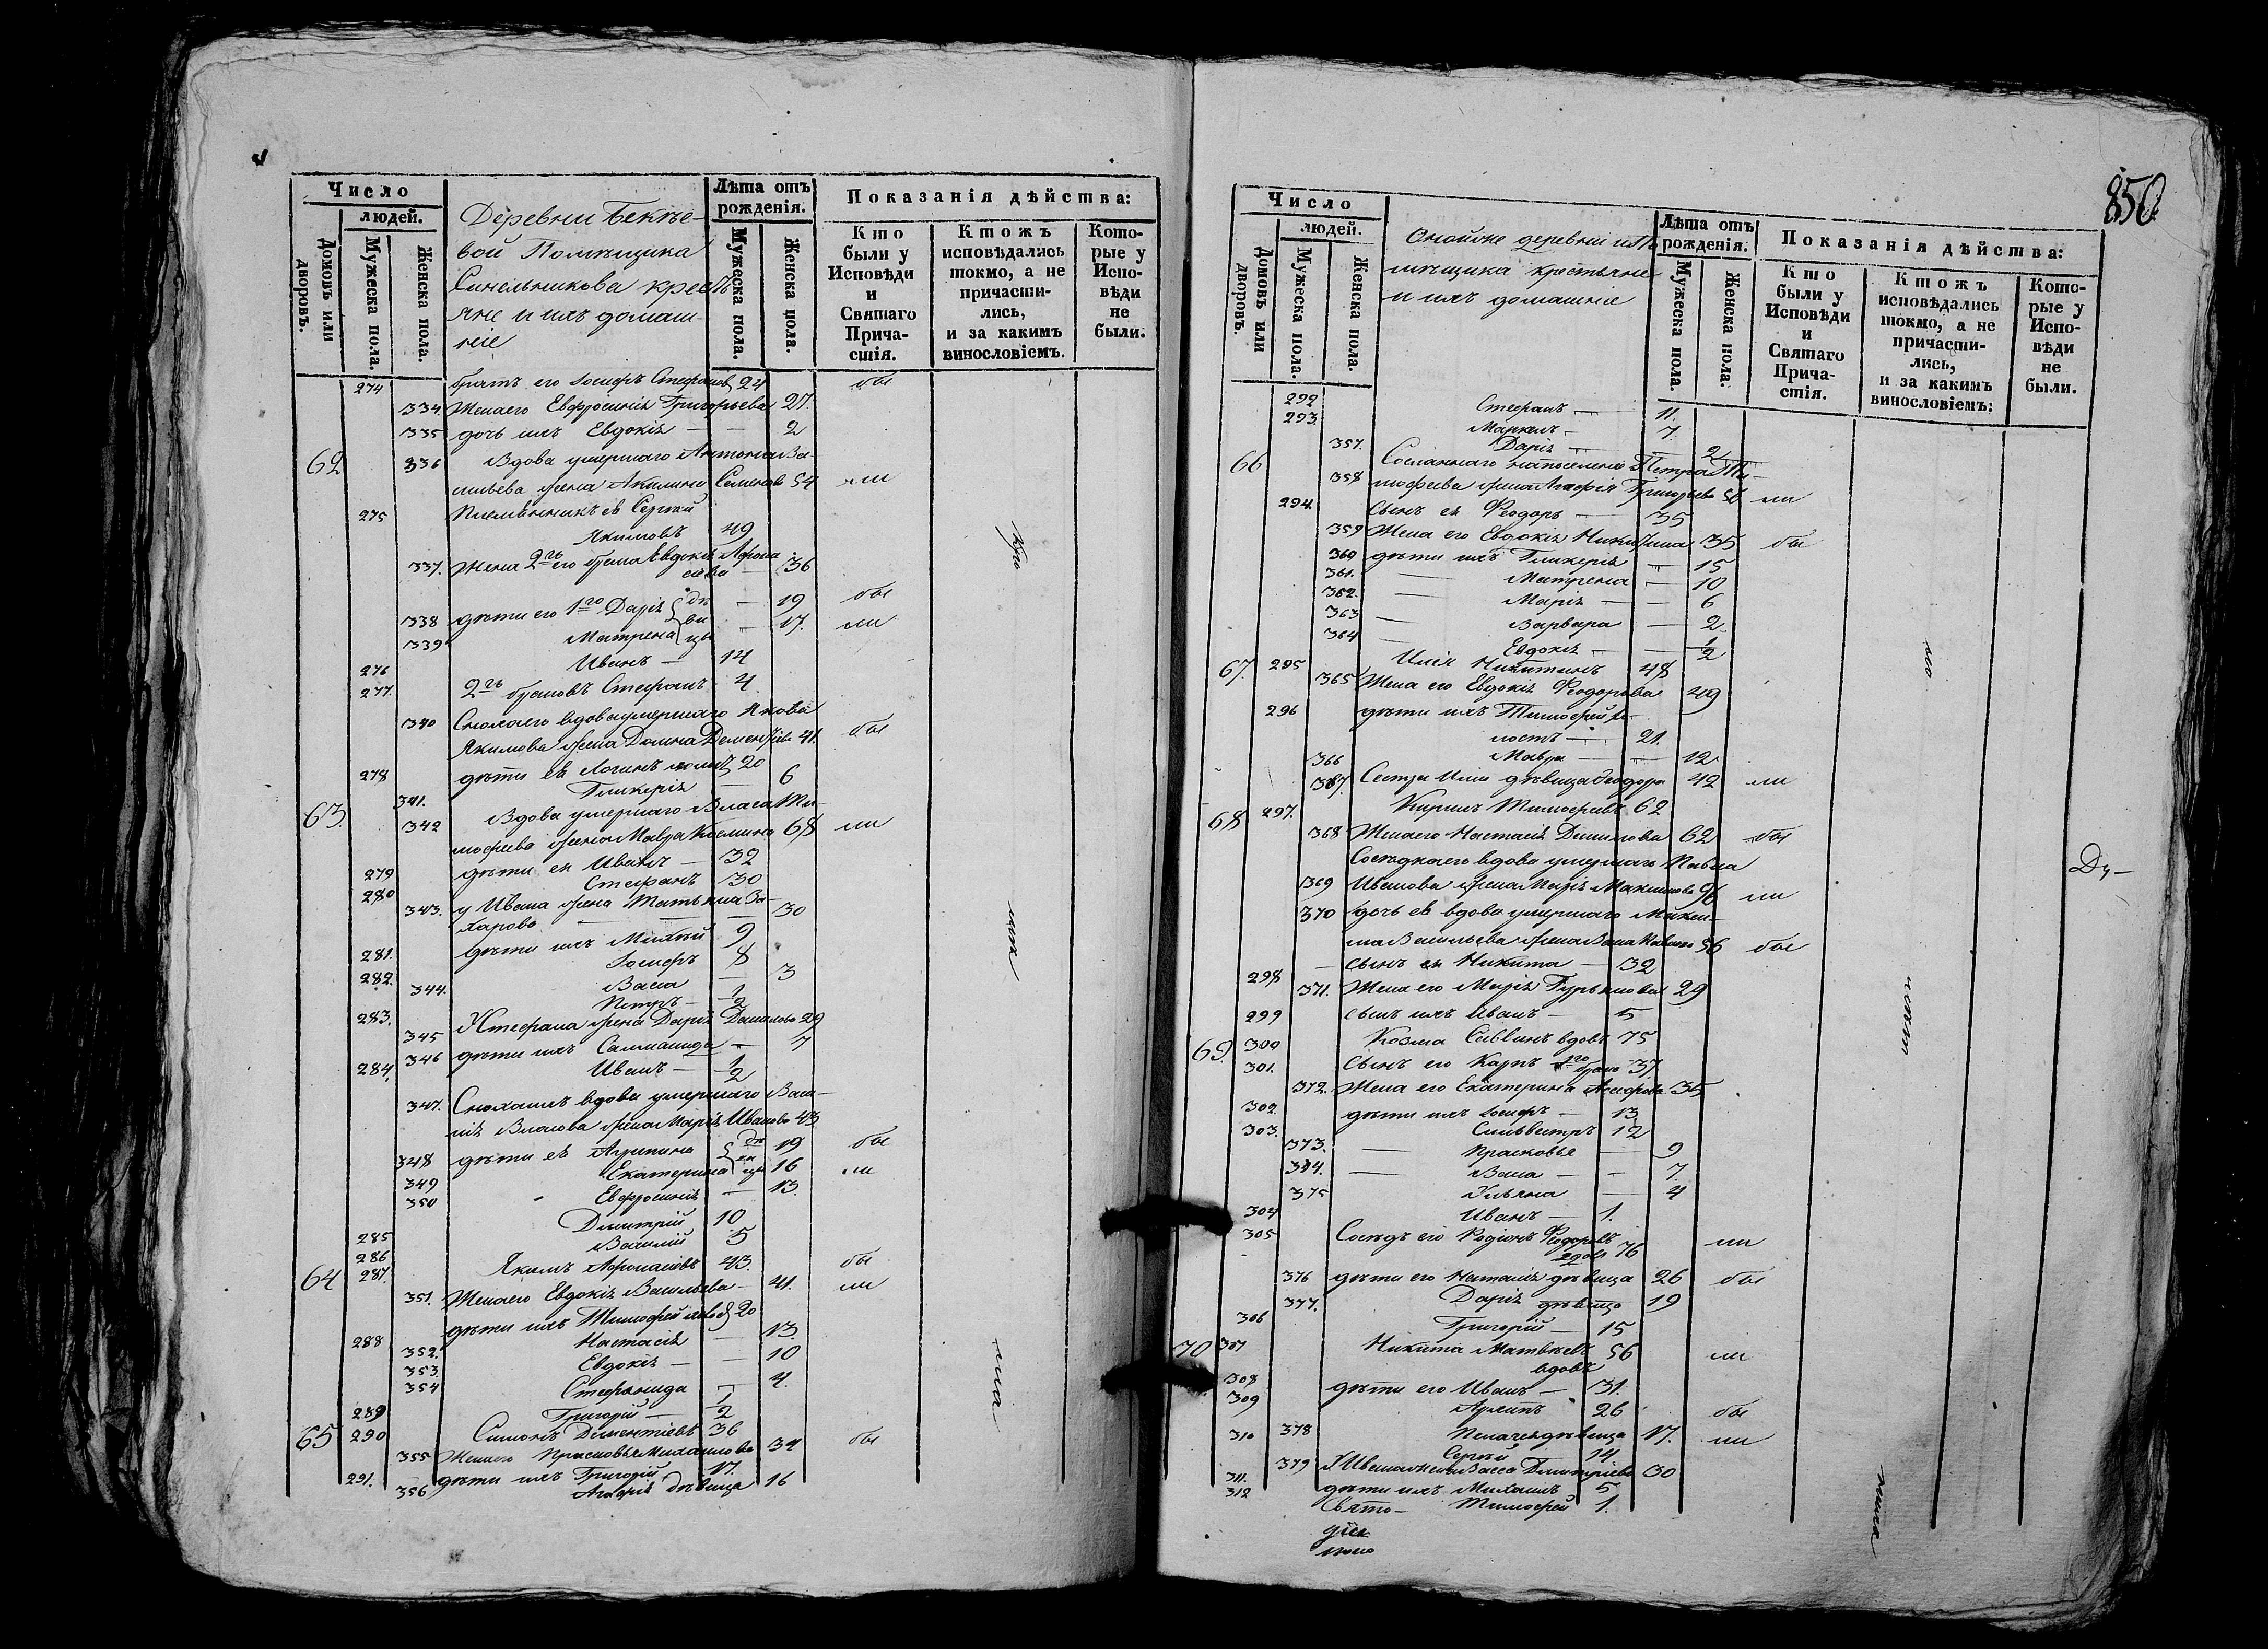 Число
людей.
Домовъ или дворовъ.
Мужеска пола.
Женска пола.
Деревни Бекѣе-
вой Помѣщика
Синельникова кресть
яне и ихъ домаш-
ніе
Лѣта отъ рожденія.
Мужеска пола.
Женска пола.
Показанія дѣйства:
Кто были у Исповѣди и Святаго Прича-стія.
Ктожъ исповѣдались токмо, а не причасти-лись, и за какимъ винословіемъ.
Кото-рые у Испо-вѣди не были.
274 братъ его Іосифъ Стефановъ 24 бы
334 Жена его Евфросинія Григорьева 27.
335 дочь ихъ Евдокія — — 2
62 336 Вдова умершаго Антона Ва-
сильева жена Акилина Семенова 54 ли
275 Племянникъ ея Сергій
Якимовъ 49
337. Жена 2го его брата Евдокія Афона
сьева — 36
338 дѣти его 1го Дарія дѣ — 19 бы
339 Матрена вицы — 17. ли
276 Иванъ — 14
277. 2го братовъ Стефанъ 4
340 Сноха его вдова умершаго Якова
Якимова жена Домна Дементіева 41. бы
278 дѣти ея Логинъ холостъ 20
341. Гликерія — 6
63. 342 Вдова умершаго Власа Ти-
мофеева жена Мавра Козмина 68 ли
279 дѣти ея Иванъ — 32
280 Стефанъ 30
343. у Ивана жена Татьяна За-
харова — — — 30
281. дѣти ихъ Михей 9
282. Іосифъ 8
344. Васса — 3
283. Петръ — 1/2
345 У Стефана жена Дарія Данилова 29
346 дѣти ихъ Саломанида — 7
284. Иванъ — 1/2
347. Сноха ихъ вдова умершаго Васи-
лія Власова жена Марія Иванова 43
348 дѣти ея Агрипина дѣ 19 бы
349 Екатерина вицы 16 ли
350 Евфросинія — 13.
285 Дмитрій 10
286 Василій 5
64 287. Якимъ Афонасіевъ 43. бы
351. Жена его Евдокія Васильева — 41. ли
288 дѣти ихъ Тимофей холос 20
352. Настасія — 13.
353. Евдокія — — 10
354 Стефанида — 4.
289 Григорій — 1/2
65 290 Симонъ Дементіевъ 36
355 Жена его Прасковья Михаилова 34 бы
291. дѣти ихъ Григорій 17.
356 Агафія дѣвица 16
850
Число
людей.
Домовъ или дворовъ.
Мужеска пола.
Женска пола.
Онойже деревни и По
мѣщика крестьяне
и ихъ домашніе
Лѣта отъ рожденія.
Мужеска пола.
Женска пола.
Показанія дѣйства:
Кто были у Исповѣди и Святаго Прича-стія.
Ктожъ исповѣдались токмо, а не причасти-лись, и за какимъ винословіемъ:
Кото-рые у Испо-вѣди не были.
292 Стефанъ — 11.
293. Маркелъ — 7.
357. Дарія — — 2
66 Сосланнаго на поселеніе Петра Ти-
358 мофеева жена Агафія Григорьева 56 ли
294. Сынъ ея Феодоръ — 35
359 Жена его Евдокія Никитина 35 бы
360 дѣти ихъ Гликерія — 15
361. — Матрена — 10
362. — Марія — — 6
363 — Варвара — 2
364 — Евдокія — — 1/2
67. 295 Илія Никитинъ 48
365 Жена его Евдокія Феодорова 49
296 дѣти ихъ Тимофей хо-
лостъ — 21.
366 Мавра — — 12
367. Сестра Иліи дѣвица Феодора 42 ли
68 297. Кирилъ Тимофеевъ 62
368 Жена его Настасія Данилова 62 бы
Сосѣдка его вдова умершаго Павла
369 Иванова жена Марія Максимова 96 ли
370 дочь ея вдова умершаго Макси-
ма Васильева жена Васса Павлова 56 бы
298 — Сынъ ея Никита — 32
371. Жена его Марія Гурьянова 29
299 сынъ ихъ Иванъ — 5
69. 300 Козма Саввинъ вдовъ 75
301. Сынъ его Карпъ 37.
372. Жена его Екатерина 35
302. дѣти ихъ Іосифъ — 13
303. Сильвестръ 12
373. — Прасковья — 9
374. — Васса — — 7.
375 Ульяна — 4
304 Иванъ — 1.
305 Сосѣдъ его Родіонъ Феодоровъ ли
вдовъ 76
376 дѣти его Наталія дѣвица 26 бы
377. Дарія дѣвица 19
306 Григорій — 15
70 307 Никита Матвѣевъ 56 ли
вдовъ
308 дѣти его Иванъ — 31.
309 Архипъ 26 бы
378 Пелагея дѣвица 17. ли
310 Сергій 14
379 У Ивана жена Васса Дмитріева 30
311. дѣти ихъ Михаилъ 5
312 Тимофей 1.
Свято-
Ду-